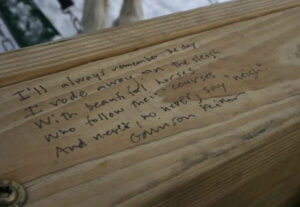 I'll always remember the day
I rode away on the sleigh
With beautiful horses
Who follow their courses
And never, no never, say "neigh"
Garrison